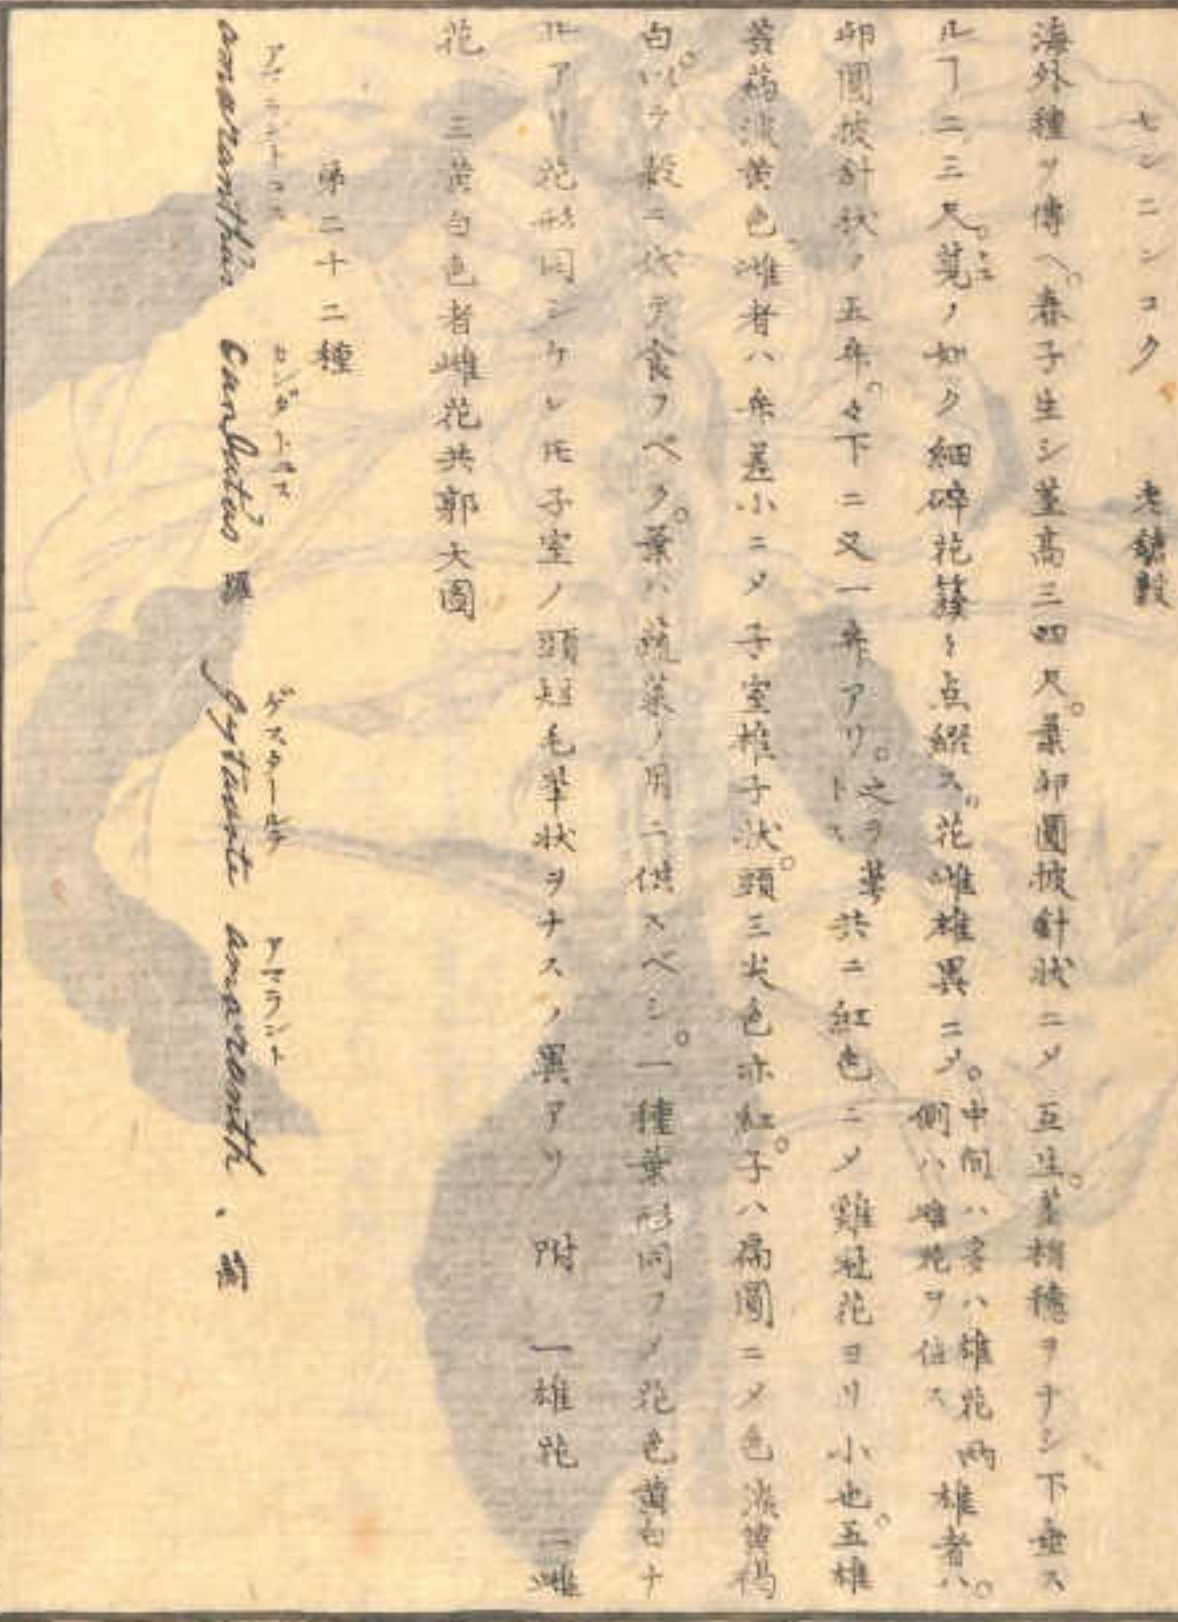 センニンコク　老鎗穀
海外種ヲ傳ヘ。春子生シ莖高三四尺。葉卵圓披針狀ニメ互生。莖梢穗ヲナシ下垂ス
ルヿ二三尺。莧ノ如ク細碎花簇〻点綴ス。花雌雄異ニメ。中間ハ雄花両側ハ雌花ヲ位ス 雄者ハ。
卵圓披針狀ノ五弁。々下ニ又一弁アリ。之ヲ萼トス 共ニ紅色ニメ雞冠花ヨリ小也。五雄
蕊葯淡黄色 雌者ハ弁差小ニメ子室椎子狀。頭三尖色亦紅。子ハ扁圓ニメ色淡黄褐
白。以テ穀ニ代テ食フベク。葉ハ蔬菜ノ用ニ供スベシ。一種葉形同フメ花色黄白ナ
ルアリ 花形同シケレ𪜈子室ノ頭短毛筆狀ヲナスノ異アリ 附 一雄花 二雌
花 三黄白色者雌花共郭大圖
第二十二種
アマラントユス カウダトユス ゲスタールテ アマラント
amaranthus Caudatus 羅 gestaarte amaranth . 蘭